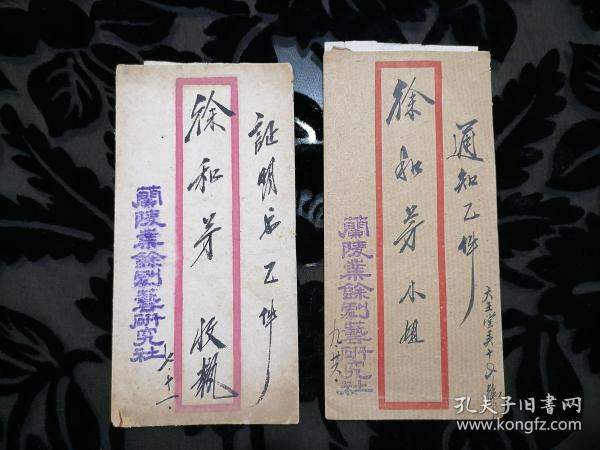 証明書乙件
徐和芳 收執
蘭陵業餘劇藝研究社
九.十一.
通知乙件
徐和芳小姐
蘭陵業餘劇藝研究社
九.廿六.
孔夫子旧书网
www.kongfz.com